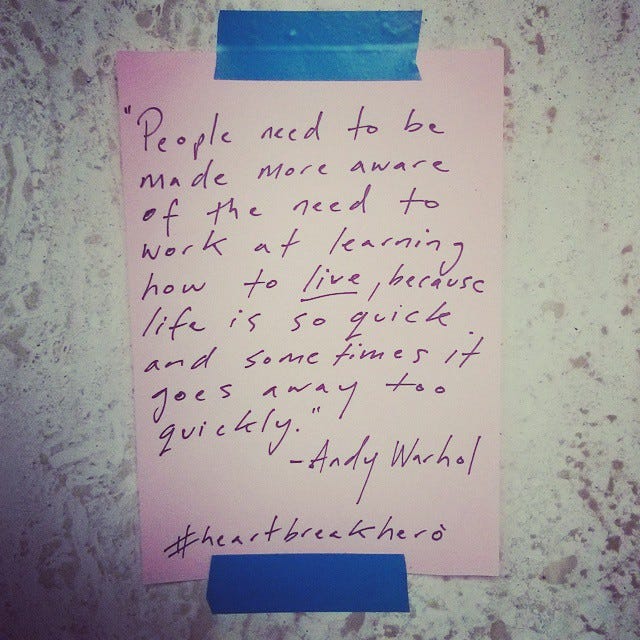 "People need to be
made more aware
of the need to
work at learning
how to live, because
life is so quick
and sometimes it
goes away too
quickly."
-Andy Warhol
#heartbreakherò